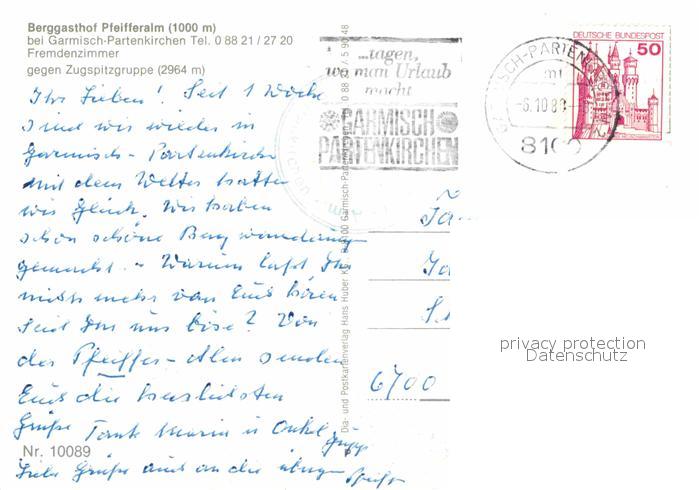 Berggasthof Pfeifferalm (1000 m)
bei Garmisch-Partenkirchen Tel. 0 88 21 / 27 20
Fremdenzimmer
gegen Zugspitzgruppe (2964 m)
Ihr Lieben! Seit 1 Woche
sind wir wieder in
Garmisch-Partenkirchen
mit dem Wetter hatten
wir Glück. Wir haben
schon schöne Bergwanderungen
gemacht. - Warum lasst Ihr
nichts mehr von Euch hören
seid Ihr uns böse? Von
der Pfeiffer-Alm senden
Euch die herzlichsten
Grüße Tante Maria u Onkel
Viele Grüße auch an die übrige
Nr. 10089
Dia- und Postkartenverlag Hans Huber KG
8100 Garmisch-Partenkirchen
...tagen,
wo man Urlaub
macht
GARMISCH
PARTENKIRCHEN
8100
DEUTSCHE BUNDESPOST
50
6700
privacy protection
Datenschutz